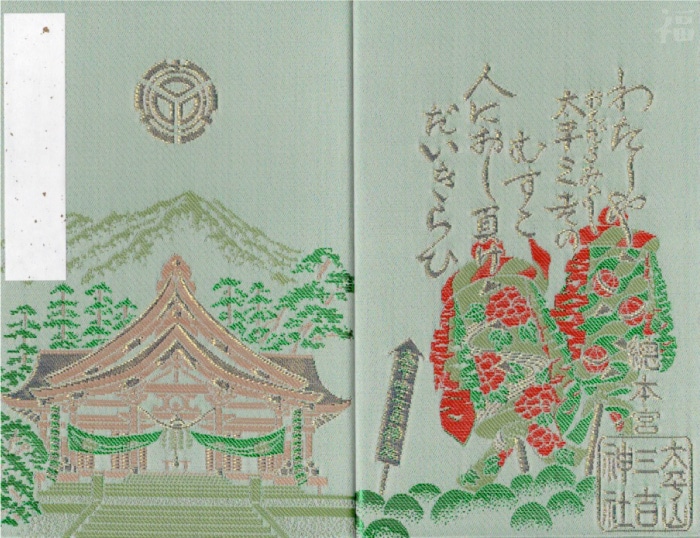 わたしゃ
太平山三吉の
おおだいらさんみよし
むすこ
人におし負け
だいきらひ
總本宮
太平山
三吉
神社
福